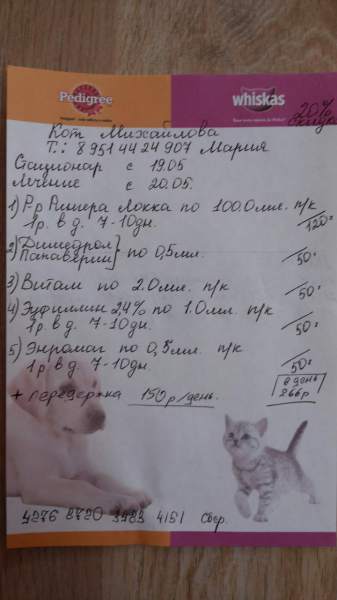 Pedigree
whiskas
20%
скидка
Кот Михайлова
Т.: 8 951 44 24 907 Мария
Стационар с 19.05
Лечение с 20.05.
1) Р-р Рингера Локка по 100.0 мл. п/к
1 р. в д. 7-10 дн.
120=
2) Димедрол } по 0,5 мл.
Папаверин
50=
3) Витам по 2.0 мл. п/к
50=
4) Эуфиллин 2,4% по 1.0 мл. п/к
1 р. в д. 7-10 дн.
50=
5) Энромаг по 0,5 мл. п/к
1 р. в д. 7-10 дн.
50=
в день
266 р
+ передержка 150 р/день.
4276 8720 3983 4151 Сбер.